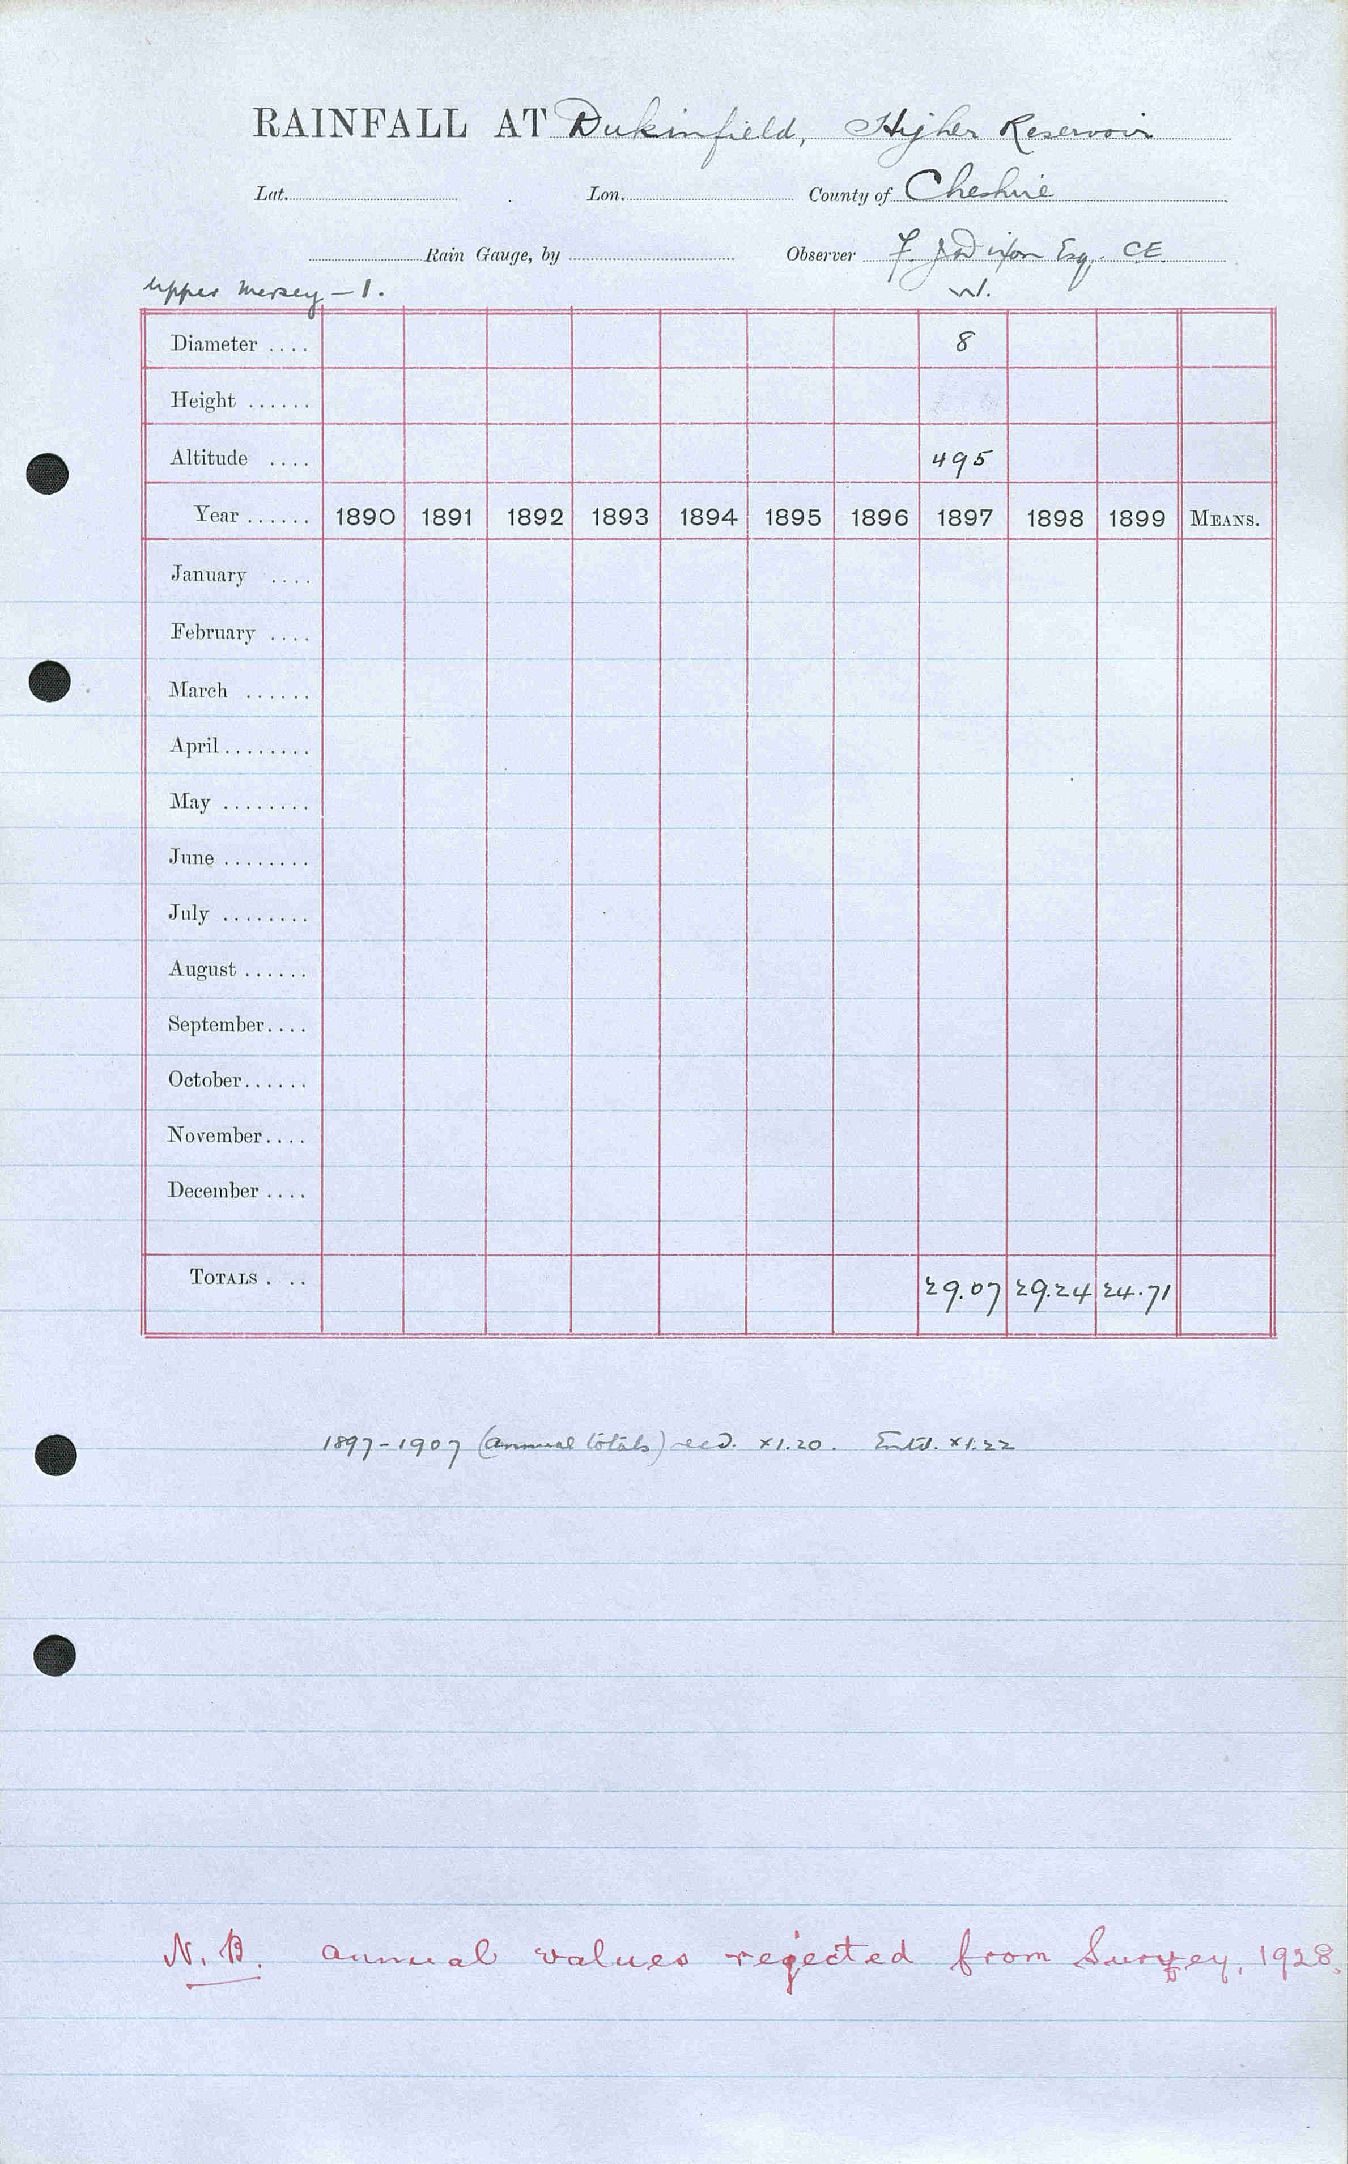 RAINFALL AT Dukinfield, Higher Reservoir
Lat. Lon. County of Cheshire
Rain Gauge, by Observer F. J. Dixon Esq. CE.
Upper Mersey - 1. W.
Diameter .... 8
Height ......
Altitude .... 495
Year ...... 1890 1891 1892 1893 1894 1895 1896 1897 1898 1899 MEANS.
January ....
February ....
March ......
April ........
May ........
June ........
July ........
August ......
September....
October......
November....
December ....
TOTALS . .. 29.07 29.24 24.71
1897-1907 (annual totals) recd. x1.20. Entd. x1.22
N.B. annual values rejected from Survey, 1928.